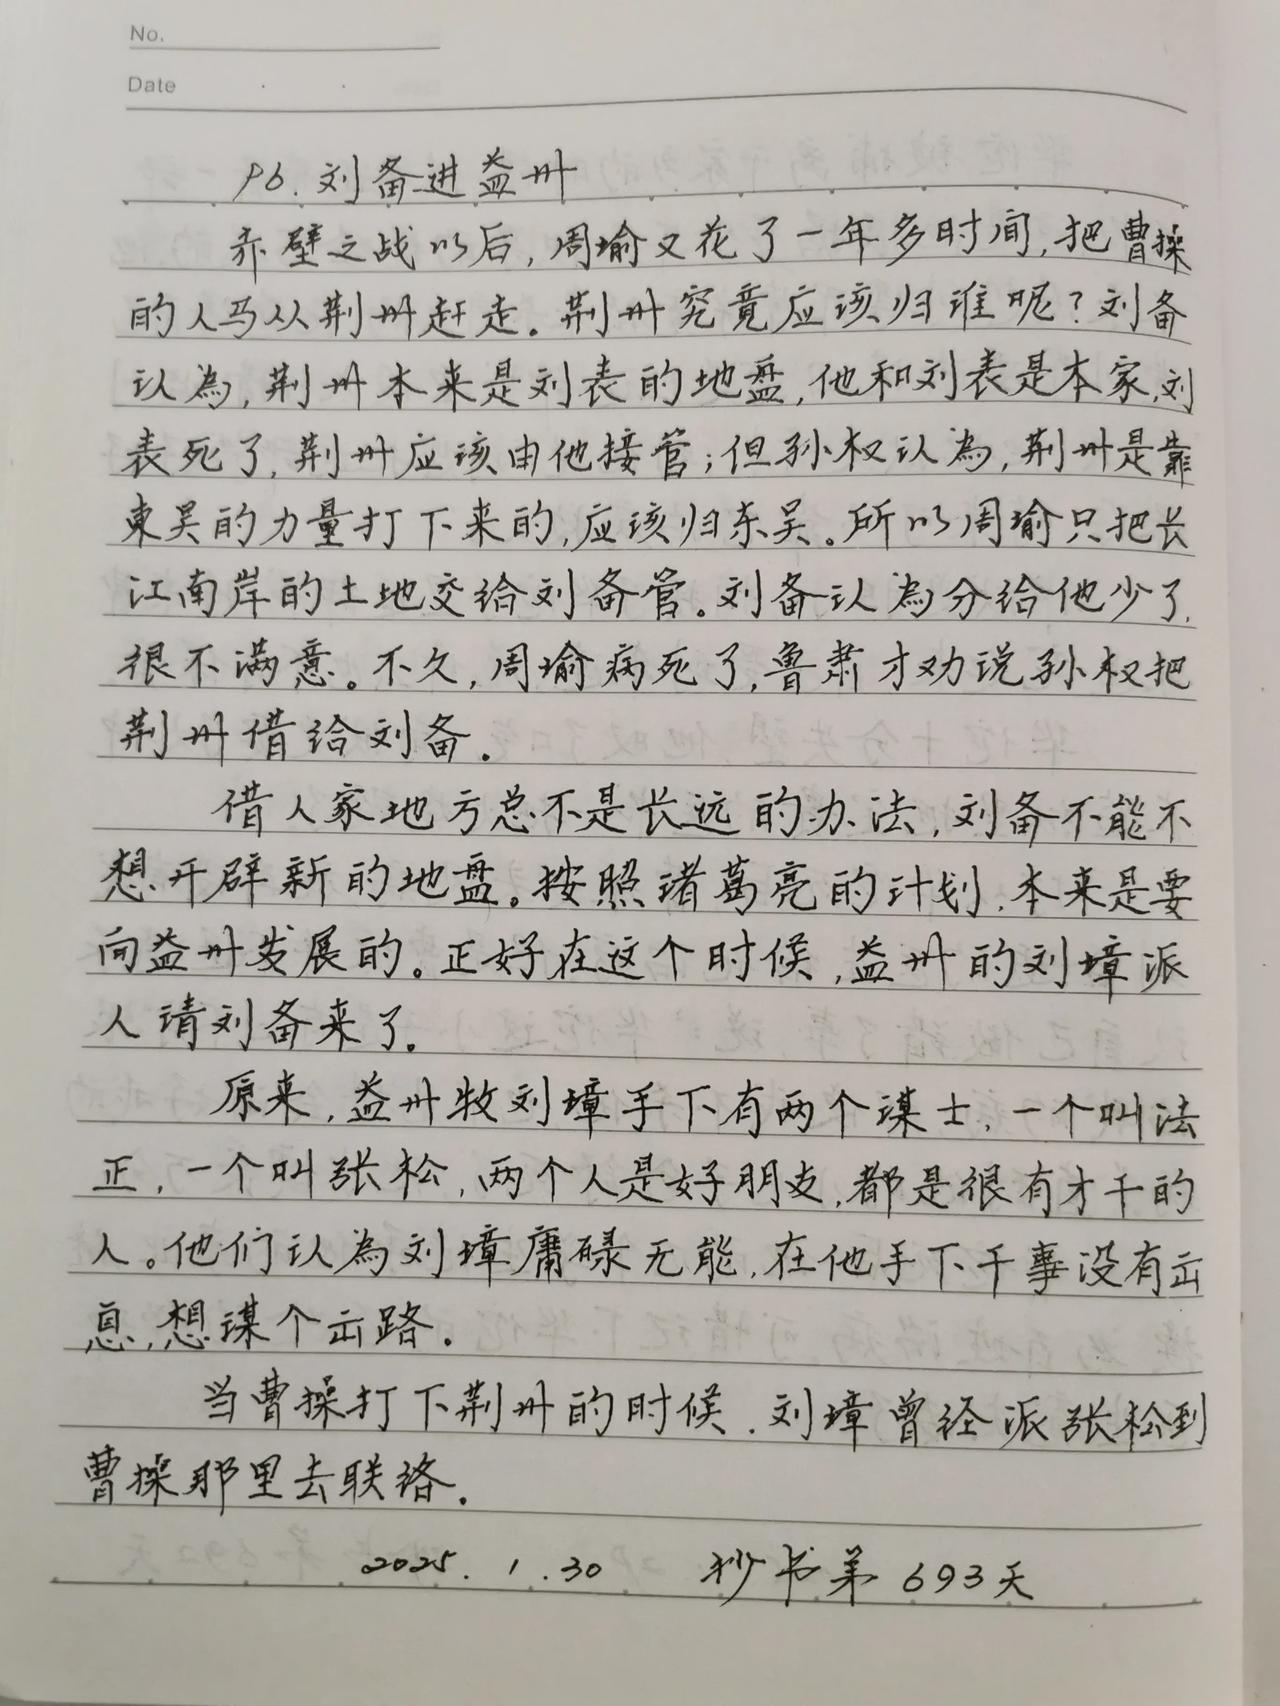 No.
Date
96.刘备进益州
赤壁之战以后,周瑜又花了一年多时间,把曹操
的人马从荆州赶走。荆州究竟应该归谁呢?刘备
认為,荆州本来是刘表的地盘,他和刘表是本家,刘
表死了,荆州应该由他接管;但孙权认為,荆州是靠
東吴的力量打下来的,应该归东吴。所以周瑜只把长
江南岸的土地交给刘备管。刘备认為分给他少了,
很不满意。不久,周瑜病死了,鲁肃才劝说孙权把
荆州借给刘备。
借人家地方总不是长远的办法,刘备不能不
想开辟新的地盘。按照诸葛亮的计划,本来是要
向益州发展的。正好在这个时候,益州的刘璋派
人请刘备来了。
原来,益州牧刘璋手下有两个谋士,一个叫法
正,一个叫张松,两个人是好朋友,都是很有才干的
人。他们认為刘璋庸碌无能,在他手下干事没有出
息,想谋个出路。
当曹操打下荆州的时候,刘璋曾经派张松到
曹操那里去联络。
2025.1.30 抄书第693天